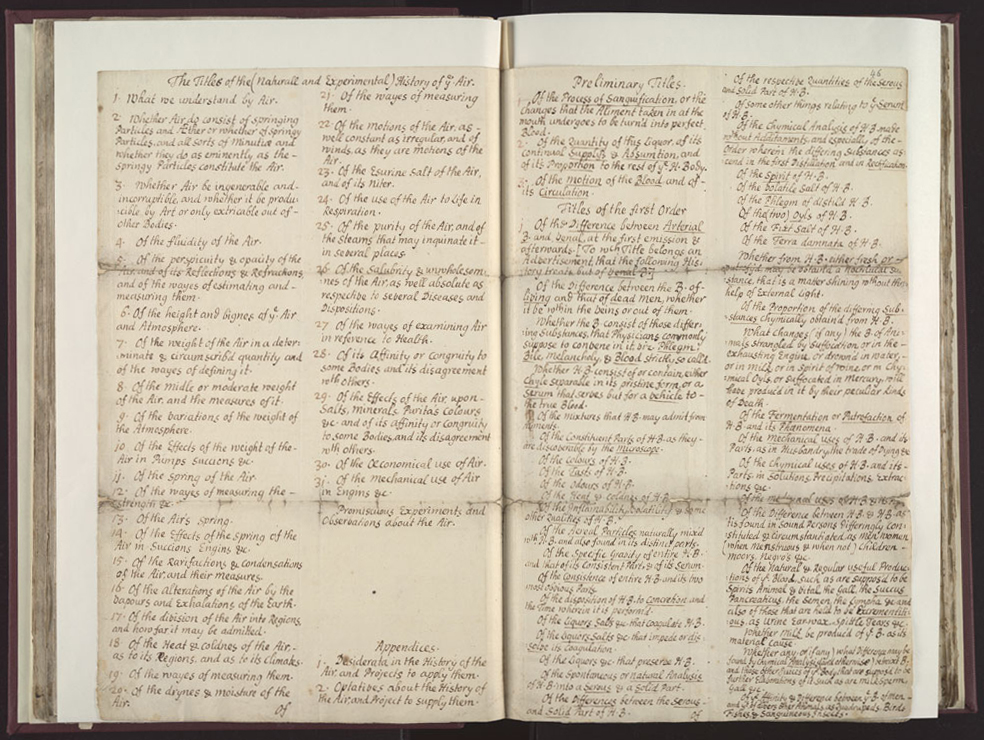 The Titles of the (Naturall and Experimental) History of yͤ Air.
1. What we understand by Air.
2. Whether Air do consist of springing
Particles and Æther or whether of springy
Particles, and all sorts of Minutiæ and
whether they do as eminently as the
springy Particles constitute the Air.
3. Whether Air be ingenerable and
incorruptible, and whether it be produ
cible by Art or only extricable out of
other Bodies.
4. Of the fluidity of the Air.
5. Of the perspicuity & opacity of the
Air, and of its Reflections & Refractions
and of the wayes of estimating and
measuring them.
6. Of the height and bignes of yͤ Air
and Atmosphere.
7. Of the weight of the Air in a deter
minate & circumscrib'd quantity and
of the wayes of defining it.
8. Of the midle or moderate weight
of the Air, and the measures of it.
9. Of the variations of the weight of
the Atmosphere.
10. Of the Effects of the weight of the
Air in Pumps Suctions &c.
11. Of the Spring of the Air
12. Of the wayes of measuring the
strength &c.
13. Of the Airs spring.
14. Of the Effects of the Spring of the
Air in Suctions Engins &c.
15. Of the Rarifactions & Condensations
of the Air, and their measures.
16. Of the Alterations of the Air by the
vapours and Exhalations of the Earth.
17. Of the division of the Air into Regions,
and how far it may be admitted.
18. Of the Heat & coldnes of the Air,
as to its Regions, and as to its climates.
19. Of the wayes of measuring them.
20. Of the drynes & moisture of the
Air.
Of
21. Of the wayes of measuring
them.
22. Of the motions of the Air, as
well constant as irregular, and of
winds as they are motions of the
Air.
23. Of the Esurine Salt of the Air,
and of its Niter.
24. Of the use of the Air to Life in
Respiration.
25. Of the purity of the Air, and of
the steams that may inquinate it
in several places
26. Of the Salubrity & unwholesom
nes of the Air, as well absolute as
respective to several Diseases, and
Dispositions.
27. Of the wayes of examining Air
in reference to Health.
28. Of its Affinity or Congruity to
some Bodies and its disagreement
with others.
29. Of the Effects of the Air upon
Salts, Minerals, Colours
&c. and of its Affinity or Congruity
to some Bodies, and its disagreement
with others.
30. Of the Œconomical use of Air.
31. Of the Mechanical use of Air
in Engins &c.
Promiscuous Experiments and
Observations about the Air.
Appendices.
1. Desiderata in the History of the
Air, and Projects to apply them.
2. Optatives about the History of
the Air, and Project to supply them.
Preliminary Titles.
1. Of the Process of Sanguification, or the
Changes that the Aliment taken in at the
mouth undergoes to be turn'd into perfect
Blood.
2. Of the Quantity of this Liquor, of its
continual Supplys & Absumtion, and
of its Proportion to the rest of yͤ H. Body.
3. Of the motion of the Blood and of
its Circulation.
Titles of the first Order
Of the Difference between Arterial
B. and Venal, at the first emission &
afterwards. [To wch Title belongs an
Advertisement that the following His
tory treats but of Venal B.]
Of the Difference between the B. of
living and that of dead Men, whether
it be within the veins or out of them.
Whether the B. consist of those differ
ing Substances, that Physicians commonly
suppose to concurre in it, viz. Phlegm,
Bile, Melancholy, & Blood strictly so call'd.
Whether H.B. consist of or contain, either
Chyle separable in its pristine form, or a
Serum that serves but for a vehicle to
the true Blood.
Of the Mixtures that H.B. may admit from
Aliments.
Of the Constituent Parts of H.B. as they
are discoverable by the Microscope.
Of the Colours of H.B.
Of the Tasts of H.B.
Of the Odours of H.B.
Of the Heat & coldnes of H.B.
Of the Inflamability, Volatility & some
other Qualities of H.B.
Of the Aereal Particles naturally mixed
with H.B. and also found in its distinct parts.
Of the Specific Gravity of entire H.B.
and that of its Consistent Part, & of its Serum.
Of the Consistence of entire H.B. and its two
most obvious Parts.
Of the disposition of H.B. to Concretion and
the Time wherein it is perform'd.
Of the Liquors Salts &c that Coagulate H.B.
Of the Liquors Salts &c that impede or dis
solve its Coagulation.
Of the Liquors &c that preserve H.B.
Of the Spontaneous or natural Analysis
of H.B. into a Serous & a Solid Part.
Of the Differences between the Serous
and Solid Part of H.B.
of
46
Of the respective Quantities of the Serous
and Solid Part of H.B.
Of some other things relating to yͤ Serum
of H.B.
Of the Chymical Analysis of H.B. made
without Additaments, and especially of the
Order wherein the differing Substances as
cend in the first Distillation and in Rectification.
Of the Spirit of H.B.
Of the Volatile Salt of H.B.
Of the Phlegm of distill'd H.B.
Of the (two) Oyls of H.B.
Of the Fixt Salt of H.B.
Of the Terra damnata of H.B.
Whether from H.B. either fresh or
may be obtain'd a Noctilucal sub
stance, that is a matter shining without the
help of External Light.
Of the Proportion of the differing Sub
stances Chymically obtain'd from H.B.
What Changes (if any) the B. of Ani
mals strangled by suffocation, or in the
exhausting Engine, or drown'd in water,
or in milk, or in Spirit of wine, or in Chy
mical Oyls, or suffocated in Mercury, will
have produc'd in it by their peculiar kinds
of Death.
Of the Fermentation or Putrefaction of
H.B. and its Phænomena.
Of the Mechanical uses of H.B. and its
Parts, as in Husbandry, the trade of Dying &c
Of the Chymical uses of H.B. and its
Parts, in Solutions, Precipitations, Extrac
tions &c.
Of the uses of H.B. & its
Of the Difference between H.B. & H.B. as
tis found in sound Persons differingly con
stituted & circumstantiated, as men, women
(when menstruous & when not) children
moors, Negro's &c.
Of the Natural & Regular useful Produc
tions of yͤ Blood, such as are suppos'd to be
Spirits Animal & Vital, the Gall, the Succus
Pancreaticus, the Semen, the Lympha &c and
also of those that are held to be Excrementiti
ous, as Urine, Ear-wax, Spittle Tears &c.
Whether Milk be produc'd of yͤ B. as its
material cause
Whether any, or (if any) what Difference may be
found by Chymical Analysis (and otherwise) betwixt B.
and those other juices of yͤ Body, that are suppos'd to be
further elaborations of it, such as are milk sperm,
Gall &c
Of yͤ Affinity & Difference between yͤ B. of men
and yͤ of divers other Animals as Quadrupeds, Birds
Fishes, & Sanguineous Insects.